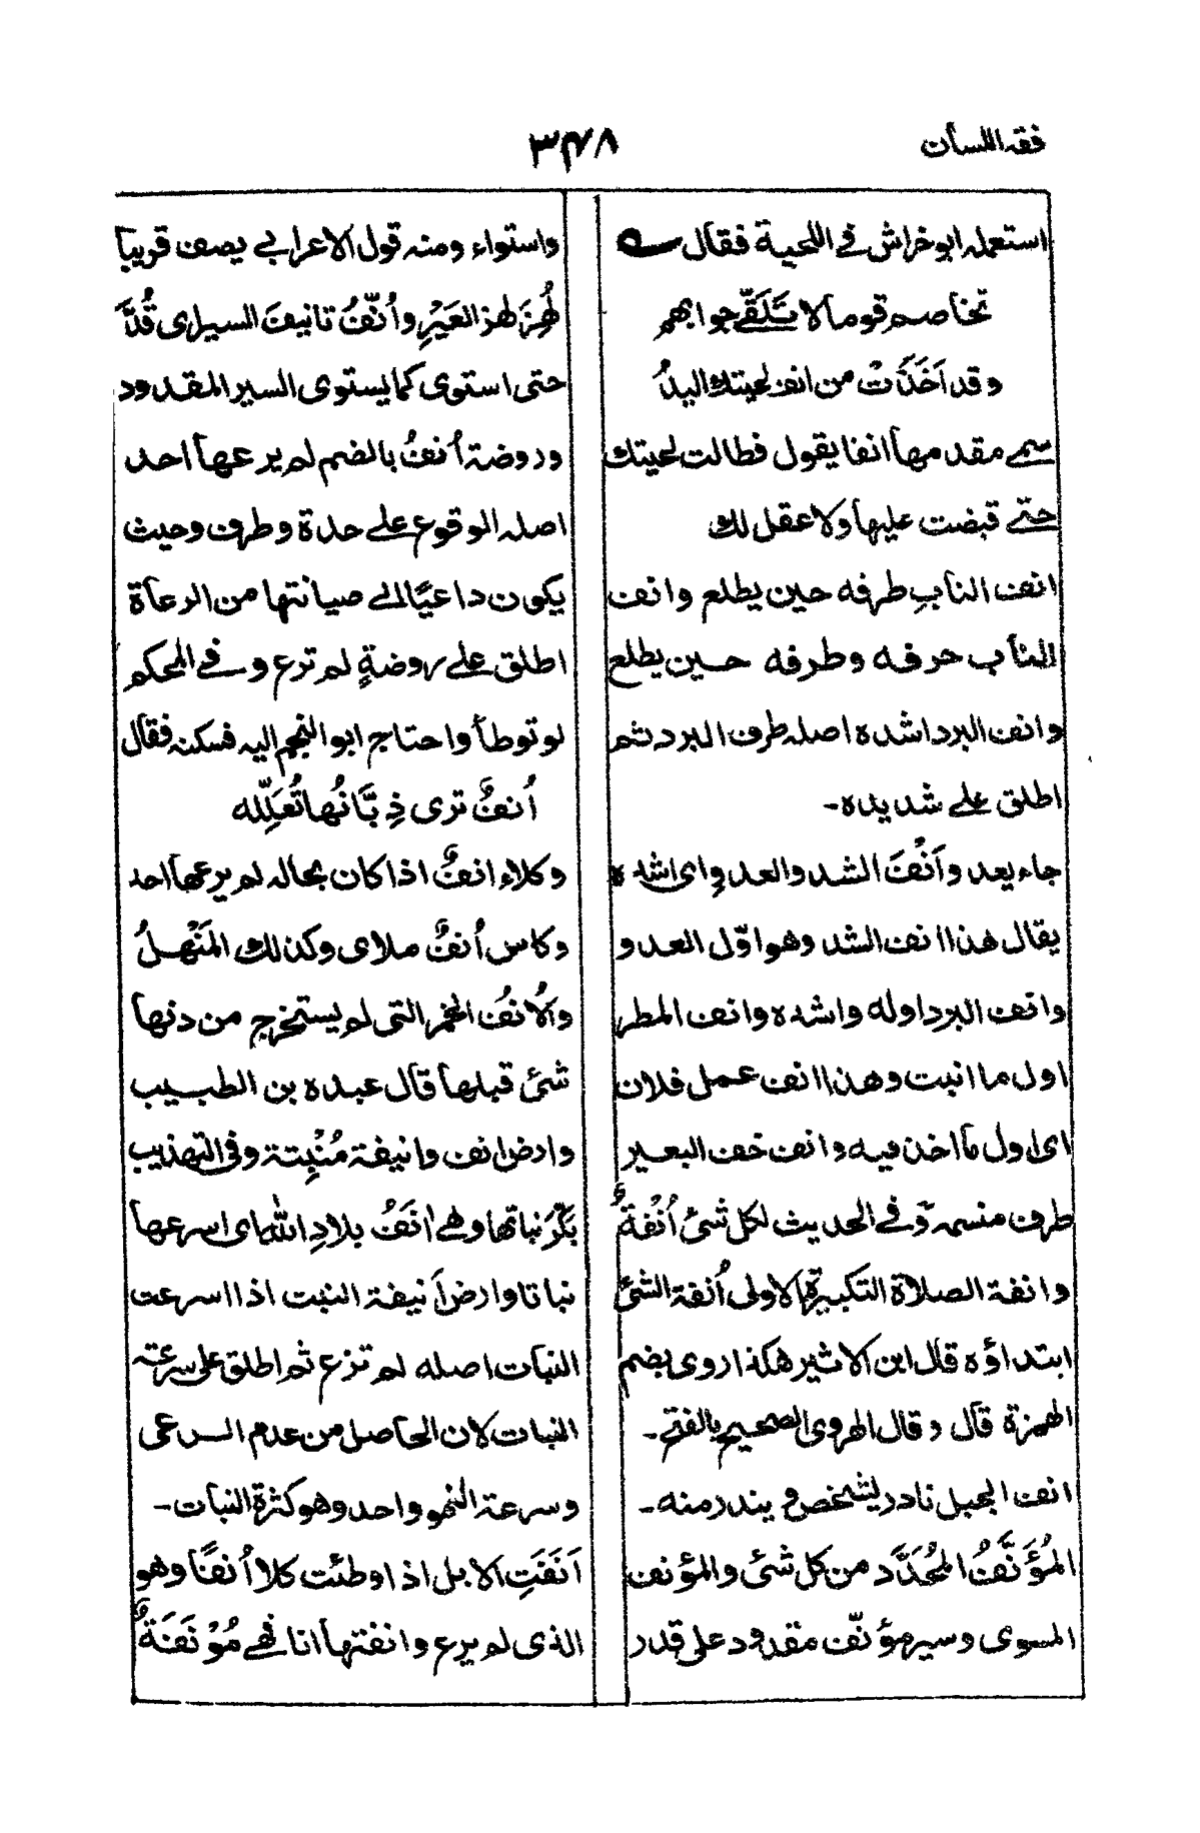 فقہ اللسان
٣٤٨
استعملہ ابو خراش فی اللحیة فقال
تخاصم قوما لا تَلَقّٰی جوابهم
وقد اَخَذَتْ من انف لحیتك الیدُ
سمی مقدمها انفا یقول فطالت لحیتك
حتّٰی قبضت علیها ولا عقل لك
انف النابِ طرفه حین یطلع وانف
الناب حرفه وطرفه حین یطلع
وانف البرد اشده اصلہ طرف البرد ثم
اطلق علی شدیده۔
جاء یعد و اَنْفَ الشد والعدوِ ای اشده
یقال هذا انف الشد وهو اوّل العدو
وانف البرد اوله واشده وانف المطر
اول ما انبت وهذا انف عمل فلان
ای اول ما اخذ فیه وانف خف البعیر
طرف منسمہ وفی الحدیث لكل شئ اُنْفةٌ
وانفة الصلاة التكبیرة الاولی اُنفة الشئ
ابتداؤه قال ابن الاثیر هكذا روی بضم
الهمزة قال وقال الهروی الصحیح بالفتح۔
انف الجبل نادر یشخص ویندر منه۔
المُؤَنَّفُ المُحَدَّد من كل شئ والمؤنف
المسوی وسیر مؤنّف مقدود علی قدر
واستواء ومنہ قول الاعرابی یصف قریبا
لُهِزَ لهز العَیْرِ واُنّفُ تانیف السیر ای قُدَّ
حتی استوی كما یستوی السیر المقدود
وروضة اُنفُ بالضم لم یرعها احد
اصلہ الوقوع علی حدة وطرف وحیث
یكون داعیًا الی صیانتها من الرعاة
اطلق علی روضةٍ لم ترع وفی المحكم
لو توطأ واحتاج ابو النجم الیه فسكنہ فقال
اُنفٌ تری ذِبَّانُها تُعَلِّله
وكلاء انفٌ اذا كان بحاله لم یرعها احد
وكاس اُنفٌ ملای وكذلك المَنْهلُ
والاُنُفُ الخمر التی لم یستخرج من دنها
شئ قبلها قال عبده بن الطبیب
وارض انف وانیفة مُنْبِتة وفی التهذیب
بَكَّرَ نباتها وهی اٰنَفُ بلادِ اللّٰه ای اسرعها
نباتا وارض اَنیفة النبت اذا اسرعت
النبات اصله لم تزع ثم اطلق علی سرعتہ
النبات لان الحاصل من عدم الرعی
وسرعة النمو واحد وهو كثرة النبات۔
اَنَفَتِ الابل اذا وطئت كلا اُنفًا وهو
الذی لم یرع وانفتها انا فهی مُؤْنَفَةٌ